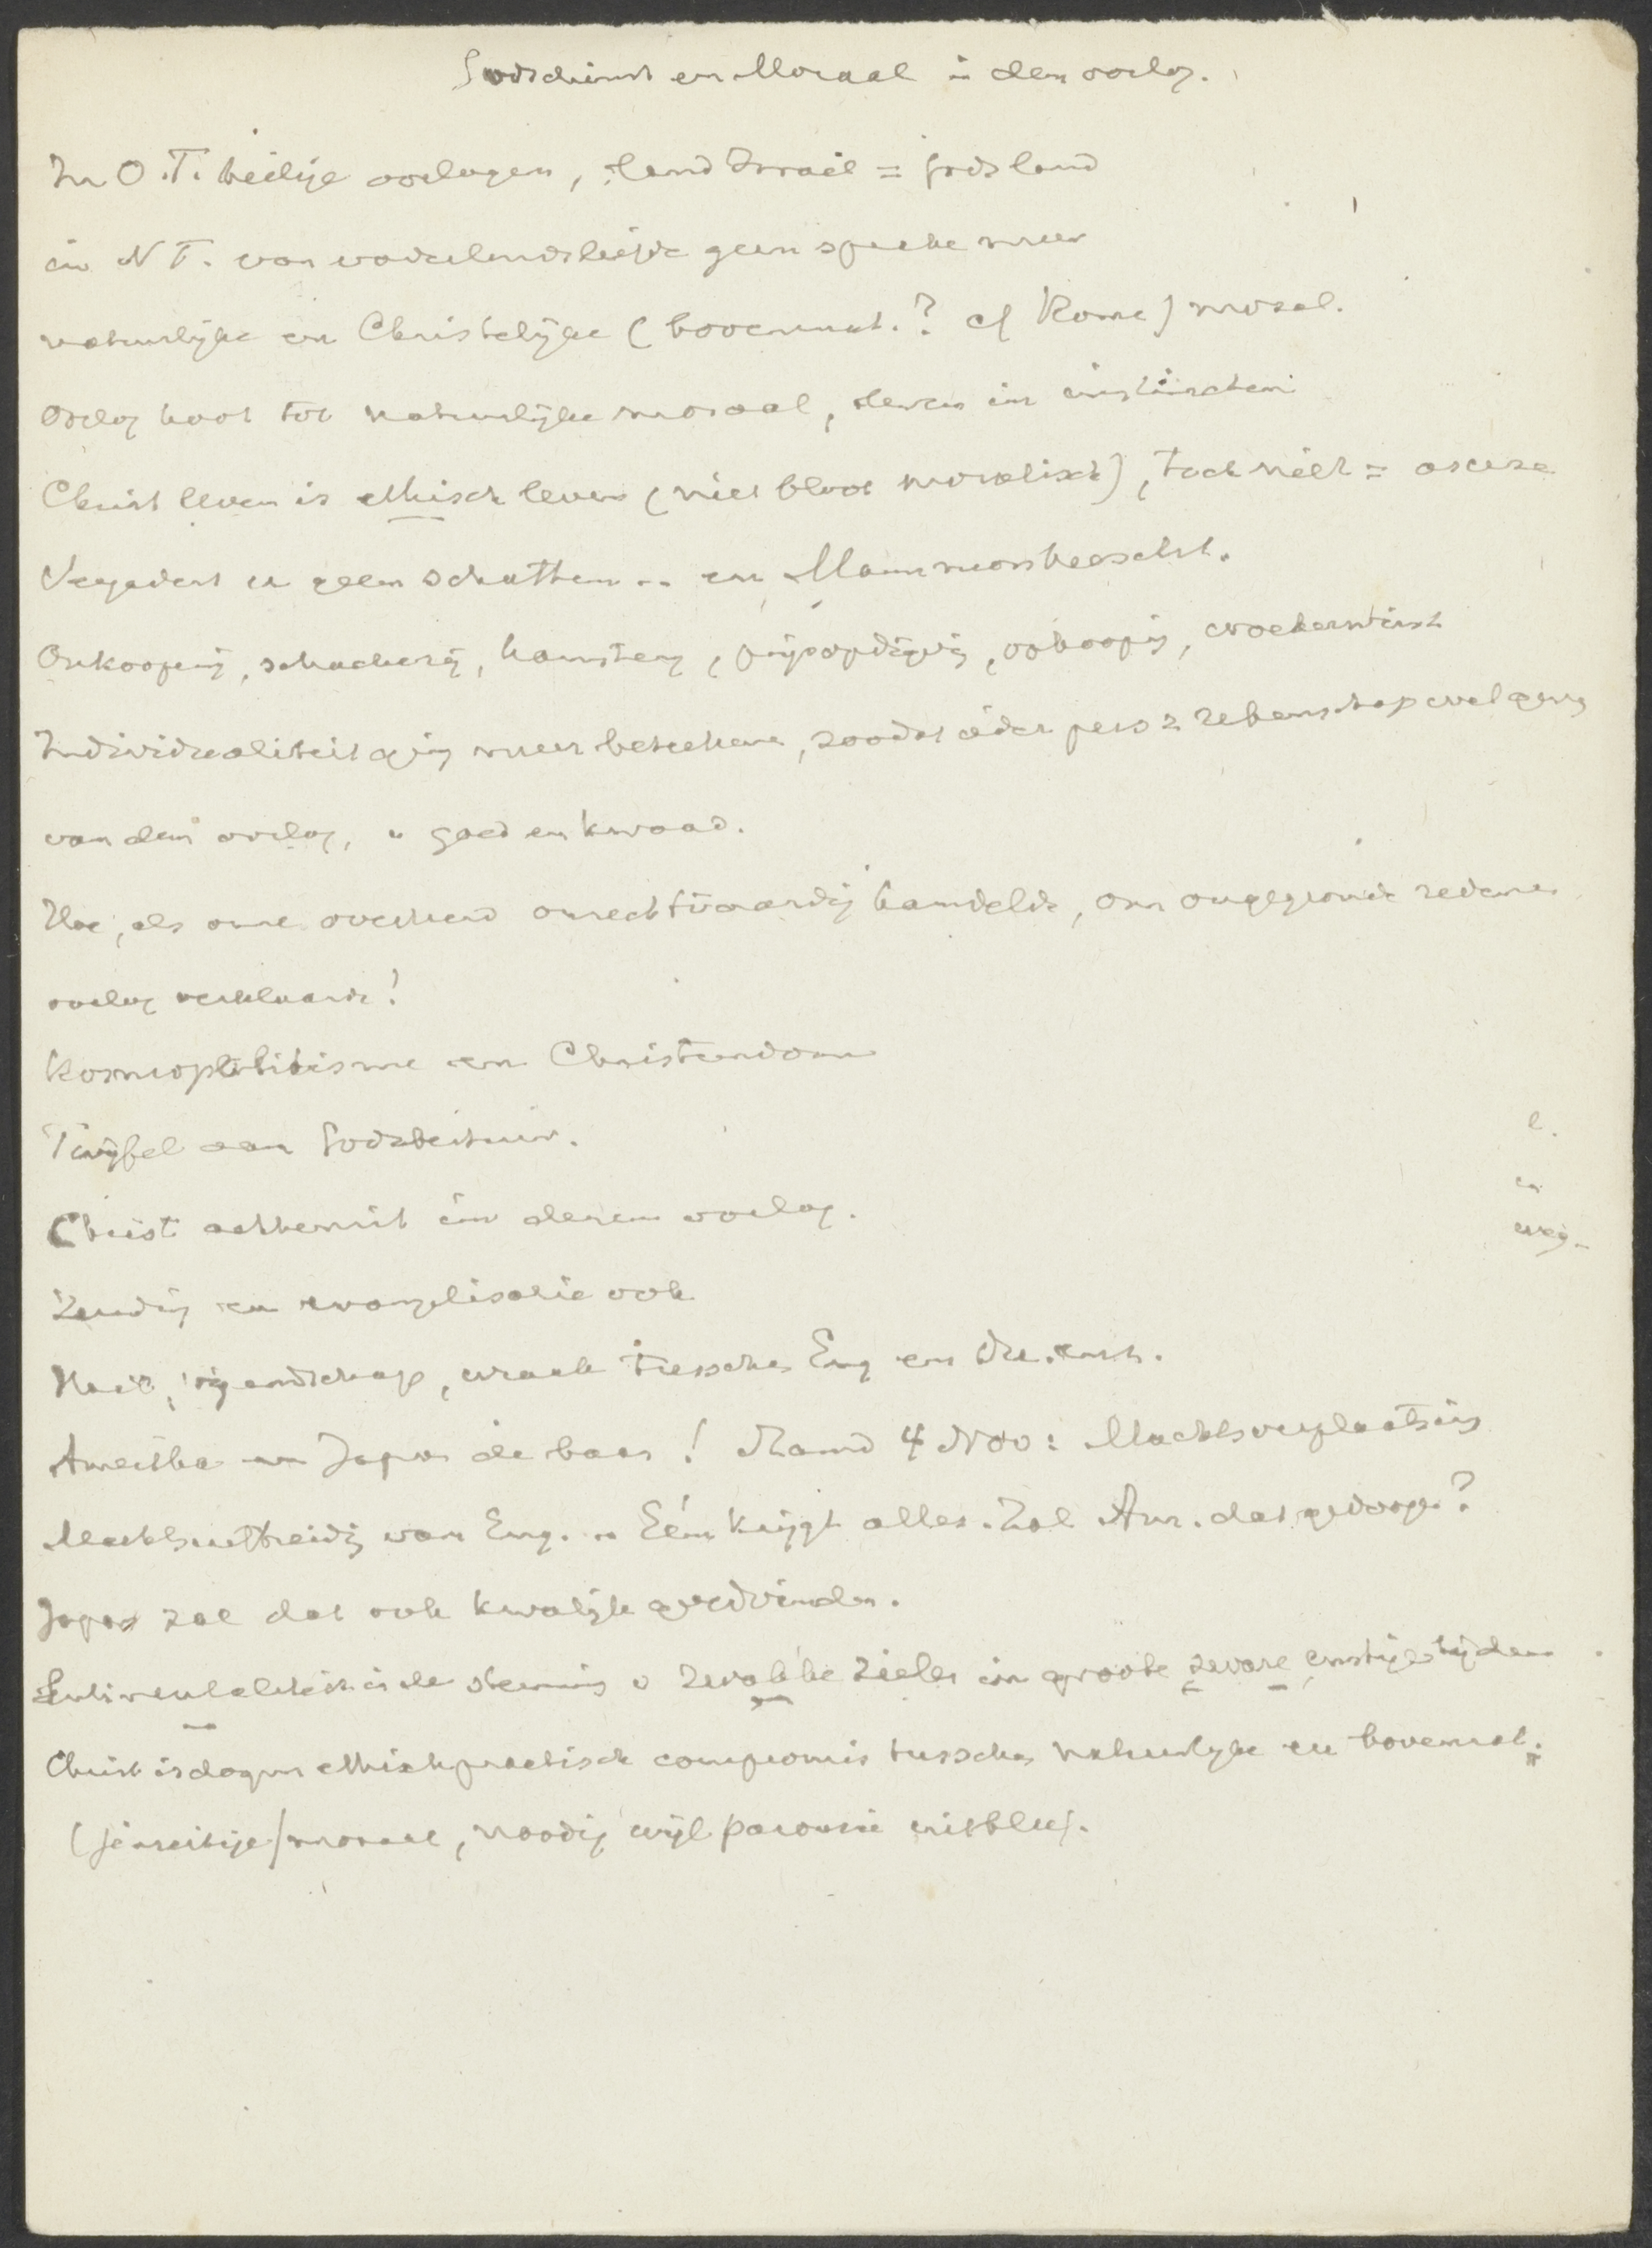 Godsdienst en Moraal in den oorlog.
In O.T. heilige oorlogen, land Israël = Gods land
in N T. van vaderlandsliefde geen sprake meer
natuurlijke en Christelijke (bovennat.? cf Rome) moral.
Oorlog hoort tot natuurlijke moraal, leven in instincten
Christ leven is ethisch leven (niet bloot moralisch), toch niet = ascese
Vergadert u geen schatten .. en Mammonsheerscht.
Omkooping, schacherij, hamsterij, prijsopdrijving, ophooping, woekerwinst
Individualiteit ging meer beteekenen, zoodat ieder pers z rekenschap wil geven
van den oorlog, v goed en kwaad.
Hoe, als onze overheid onrechtvaardig handelde, om ongegronde redenen
oorlog verklaarde!
Kosmopolitisme en Christendom
Twijfel aan Godsbestuur.
Christ achteruit in dezen oorlog.
Zending en evangelisatie ook
Haat, vijandschap, wraak tusschen Eng en
Amerika en Japan de baas! Mand 4 Nov: Machtsverplaatsing
Machtsuitbreiding van Eng. .. Eén krijgt alles. Zal Am. dat gedoogen?
Japan zal dat ook kwalijk goedvinden.
Sentimentaliteit is de stemming v zwakke zielen in groote zware ernstige tijden
Christ is dogm ethisch practisch compromis tusschen natuurlijke en bovennat.
(jenseitige) moraal, noodig wijl parousie uitbleef.
e.
en
weg-